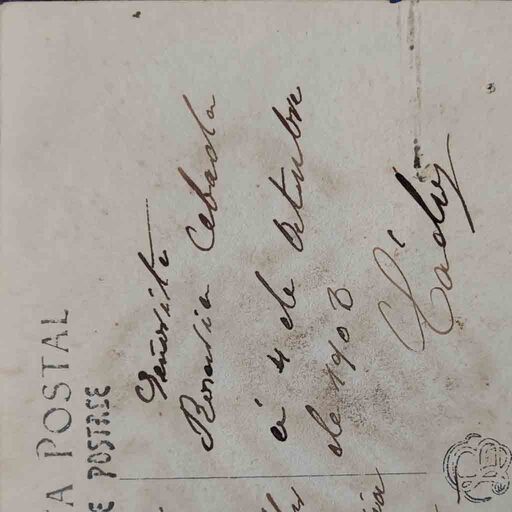 TA POSTAL
E POSTALE
Señorita
Rosalia Cebada
á 4 de Octubre
de 1903
Cádiz